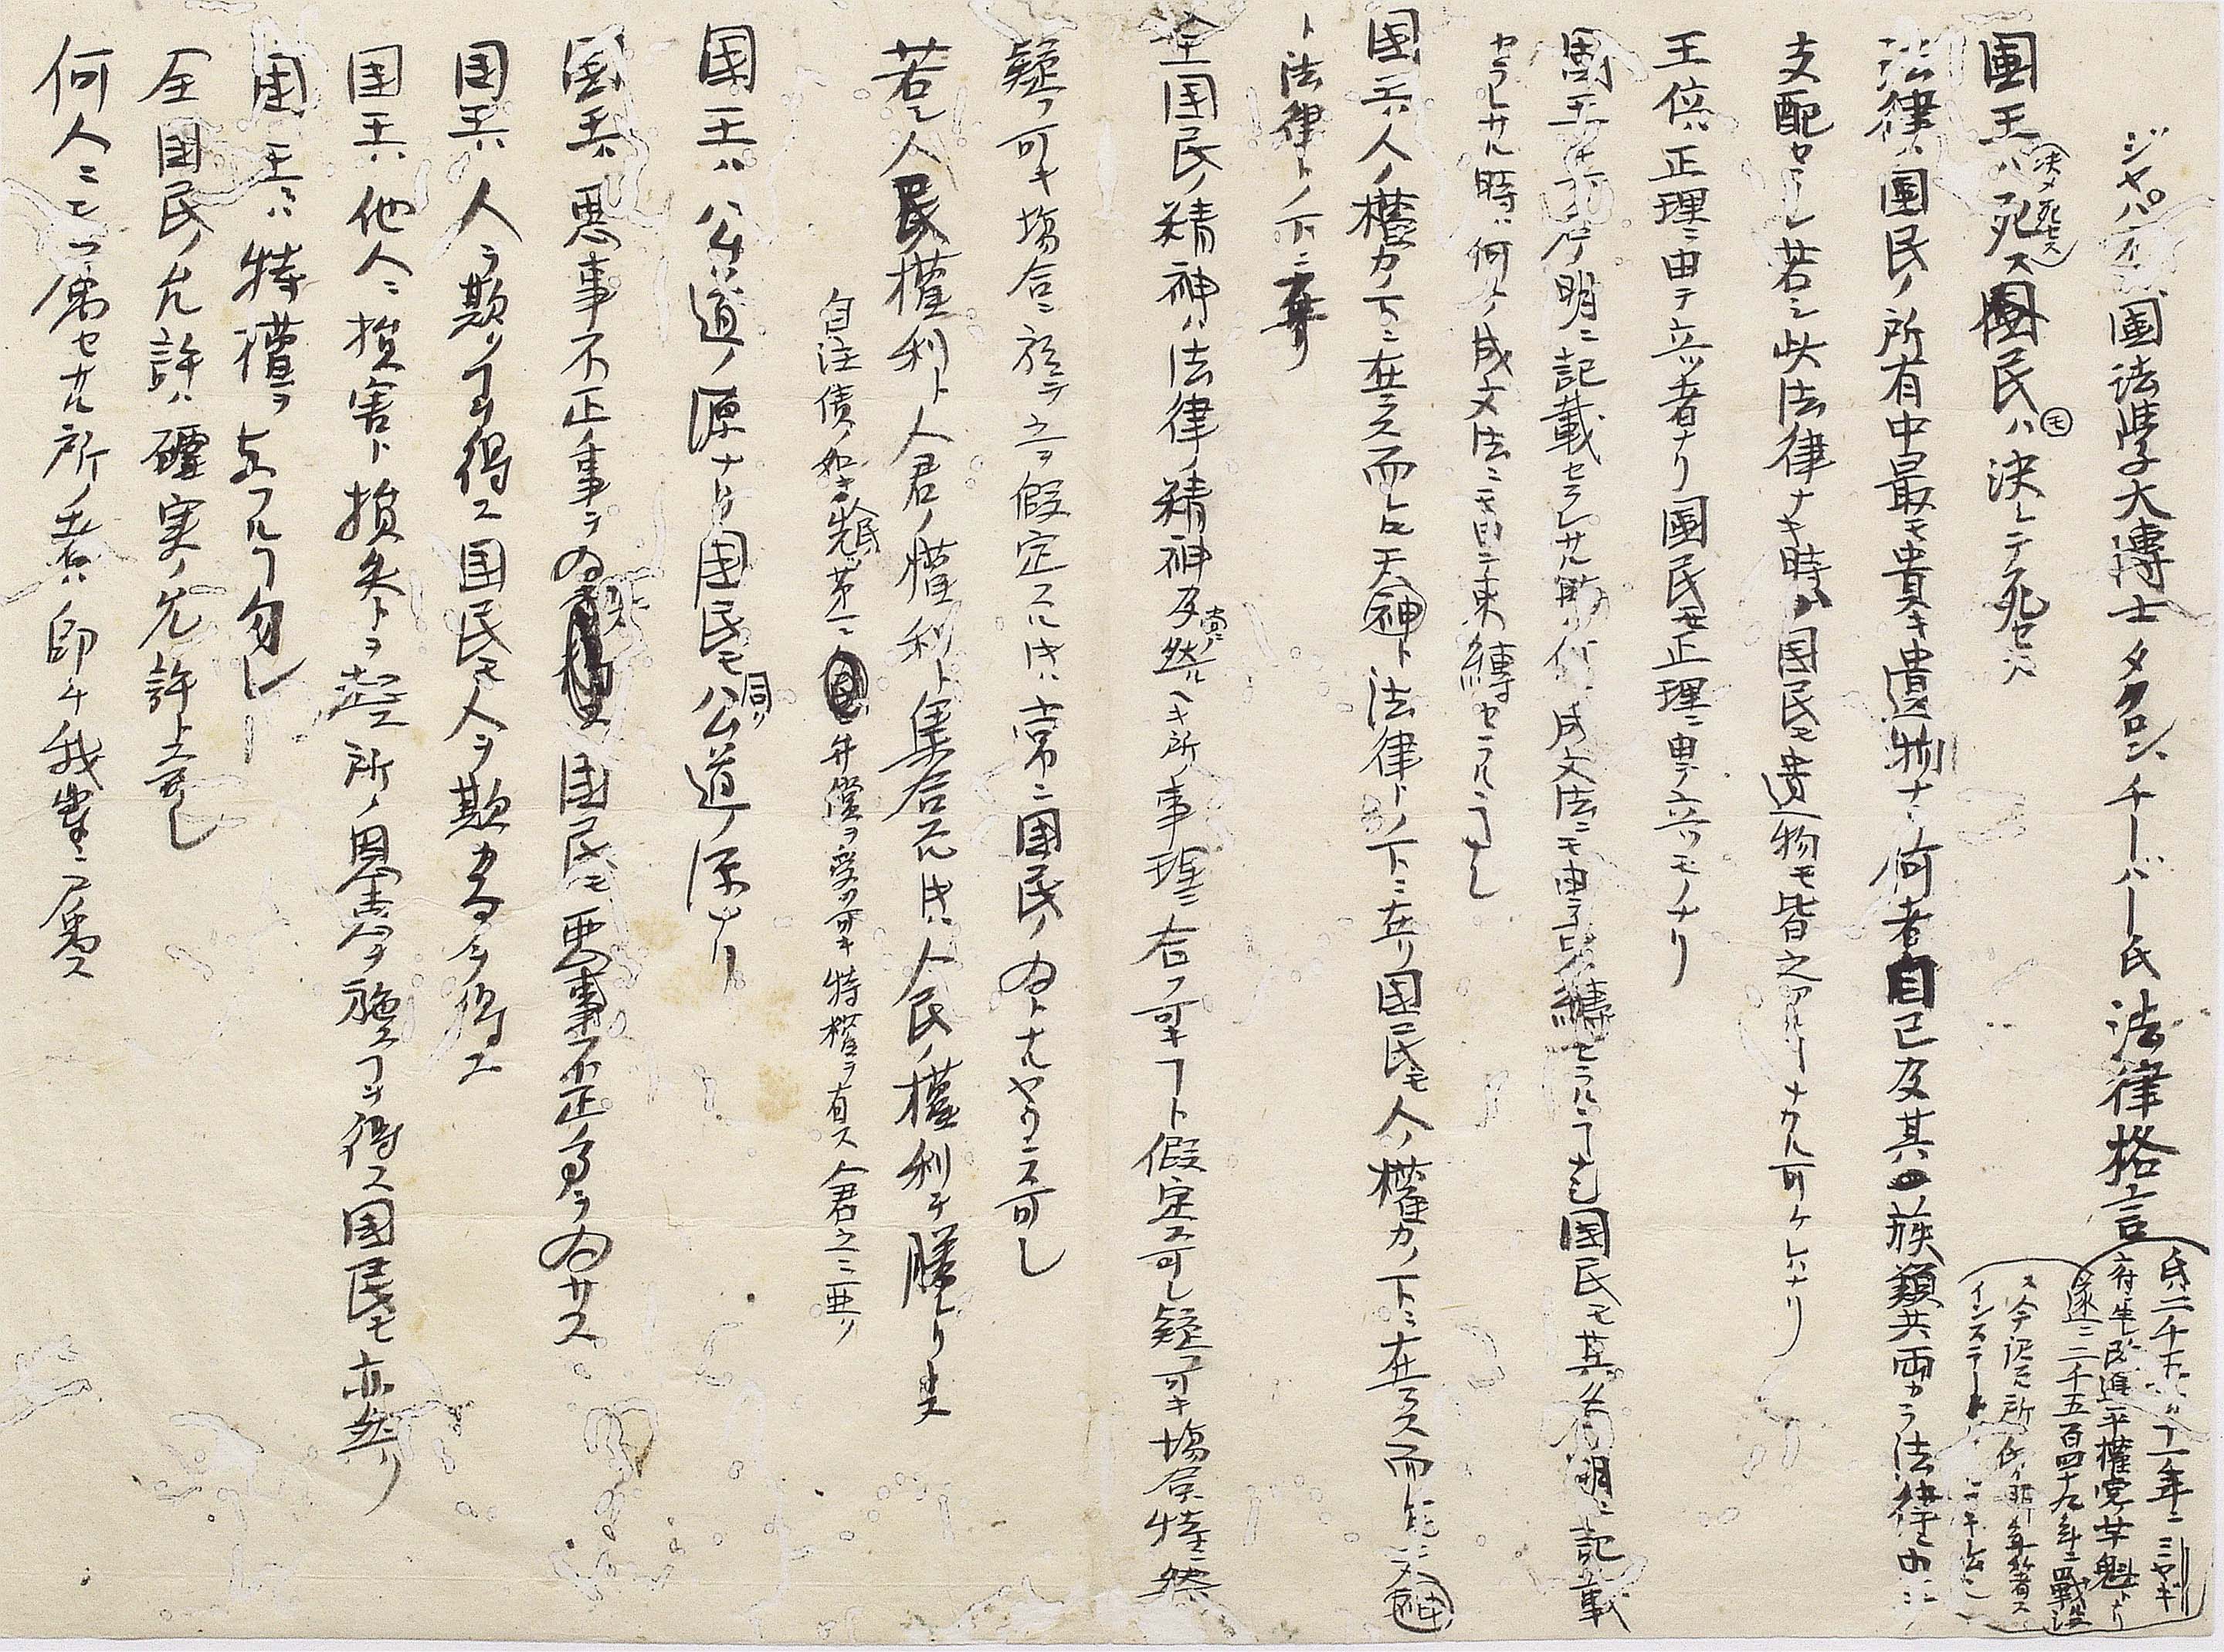 ジャパネス国法学大博士タクロン、チーバー氏法律格言
氏ハ二千五百 十一年ニミヤギ
府ニ生ル 民進平権党ノ首魁タリ
遂ニ二千五百四十九年ニ戦没
ス今訳スル所ハ氏ノ 著ス
インスチー
国王ハ死ス国民ハ決シテ死セス
(決メ死セス)
モ
法律ハ国民ノ所有中最モ貴キ遺物ナリ何者自己及其ノ族類共両ナカラ法律ニ由ニ
支配セラレ若シ此法律ナキ時ハ国民モ遺物モ皆之アル ナカル可ケレハナリ
王位ハ正理ニ由テ立ツ者ナリ国民モ正理ニ由テ立ツモノナリ
国王ハ其名片明ニ記載セラレサル時ハ何 成文法ニモ由テ束縛セラルヿナシ国民モ其名片明ニ記載
セラレサル時ハ何ノ成文法ニモ由テ束縛セラルヿナシ
国王ハ人ノ権力ノ下ニ在ラス而シテ天神ト法律トノ下ニ在リ国民モ人ノ権力ノ下ニ在ラス而シテ天神
ト法律トノ下ニ在リ
全国民ノ精神ハ法律ノ精神及然ルヘキ所ノ事理ニ合フ可キヿト仮定ス可シ疑フ可キ場合特ニ然
疑フ可キ場合ニ於テ之ヲ仮定スルトキハ常ニ国民ノ為トナルヤウニス可シ
若シ人民ノ権利ト人君ノ権利ト集合スルトキハ人民ノ権利ヲ勝レリトス
自注債ノ如キ人民先ツ第一ニ弁償ヲ受ク可キ特権ヲ有ス人君之ニ亜ク
国王ハ公ケ道ノ源ナリ国民モ同ク公ケ道ノ源ナリ
国王ハ悪事不正ノ事ヲ為サス国民モ悪事不正ノ事ヲ為サス
国王ハ人ヲ欺クヿヲ得ス国民モ人ヲ欺クヿヲ得ス
国王ハ他人ニ損害ト損失トヲ起ス所ノ恩恵ヲ施スヿヲ得ス国民モ亦然リ
国王ニハ特権ヲ与フルヿ勿レ
全国民ノ允許ハ確実ノ允許ト云可シ
何人ニモ属セサル所ノ者ハ即チ我輩ニ属ス